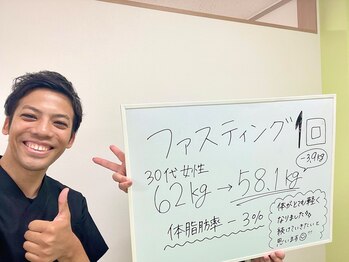 ファスティング1回
-3.9kg
30代女性
62kg→58.1kg
体脂肪率 -3%
体がとても軽く
なりました!!
続けていきたいと
思います😊!!